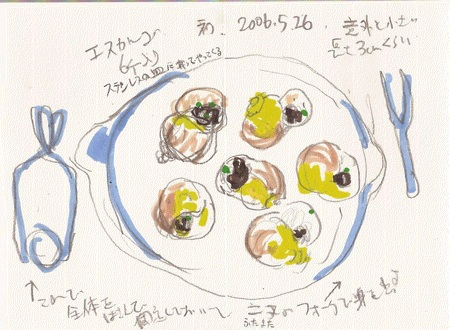 エスカルゴ 初. 2006.5.26. 意外と小さい
6ケ入り 長さ3cmくらい
ステンレスの皿に乗ってやってくる
↑これで 全体を 固定しておいて 二又のフォークで身を出す
ふたまた